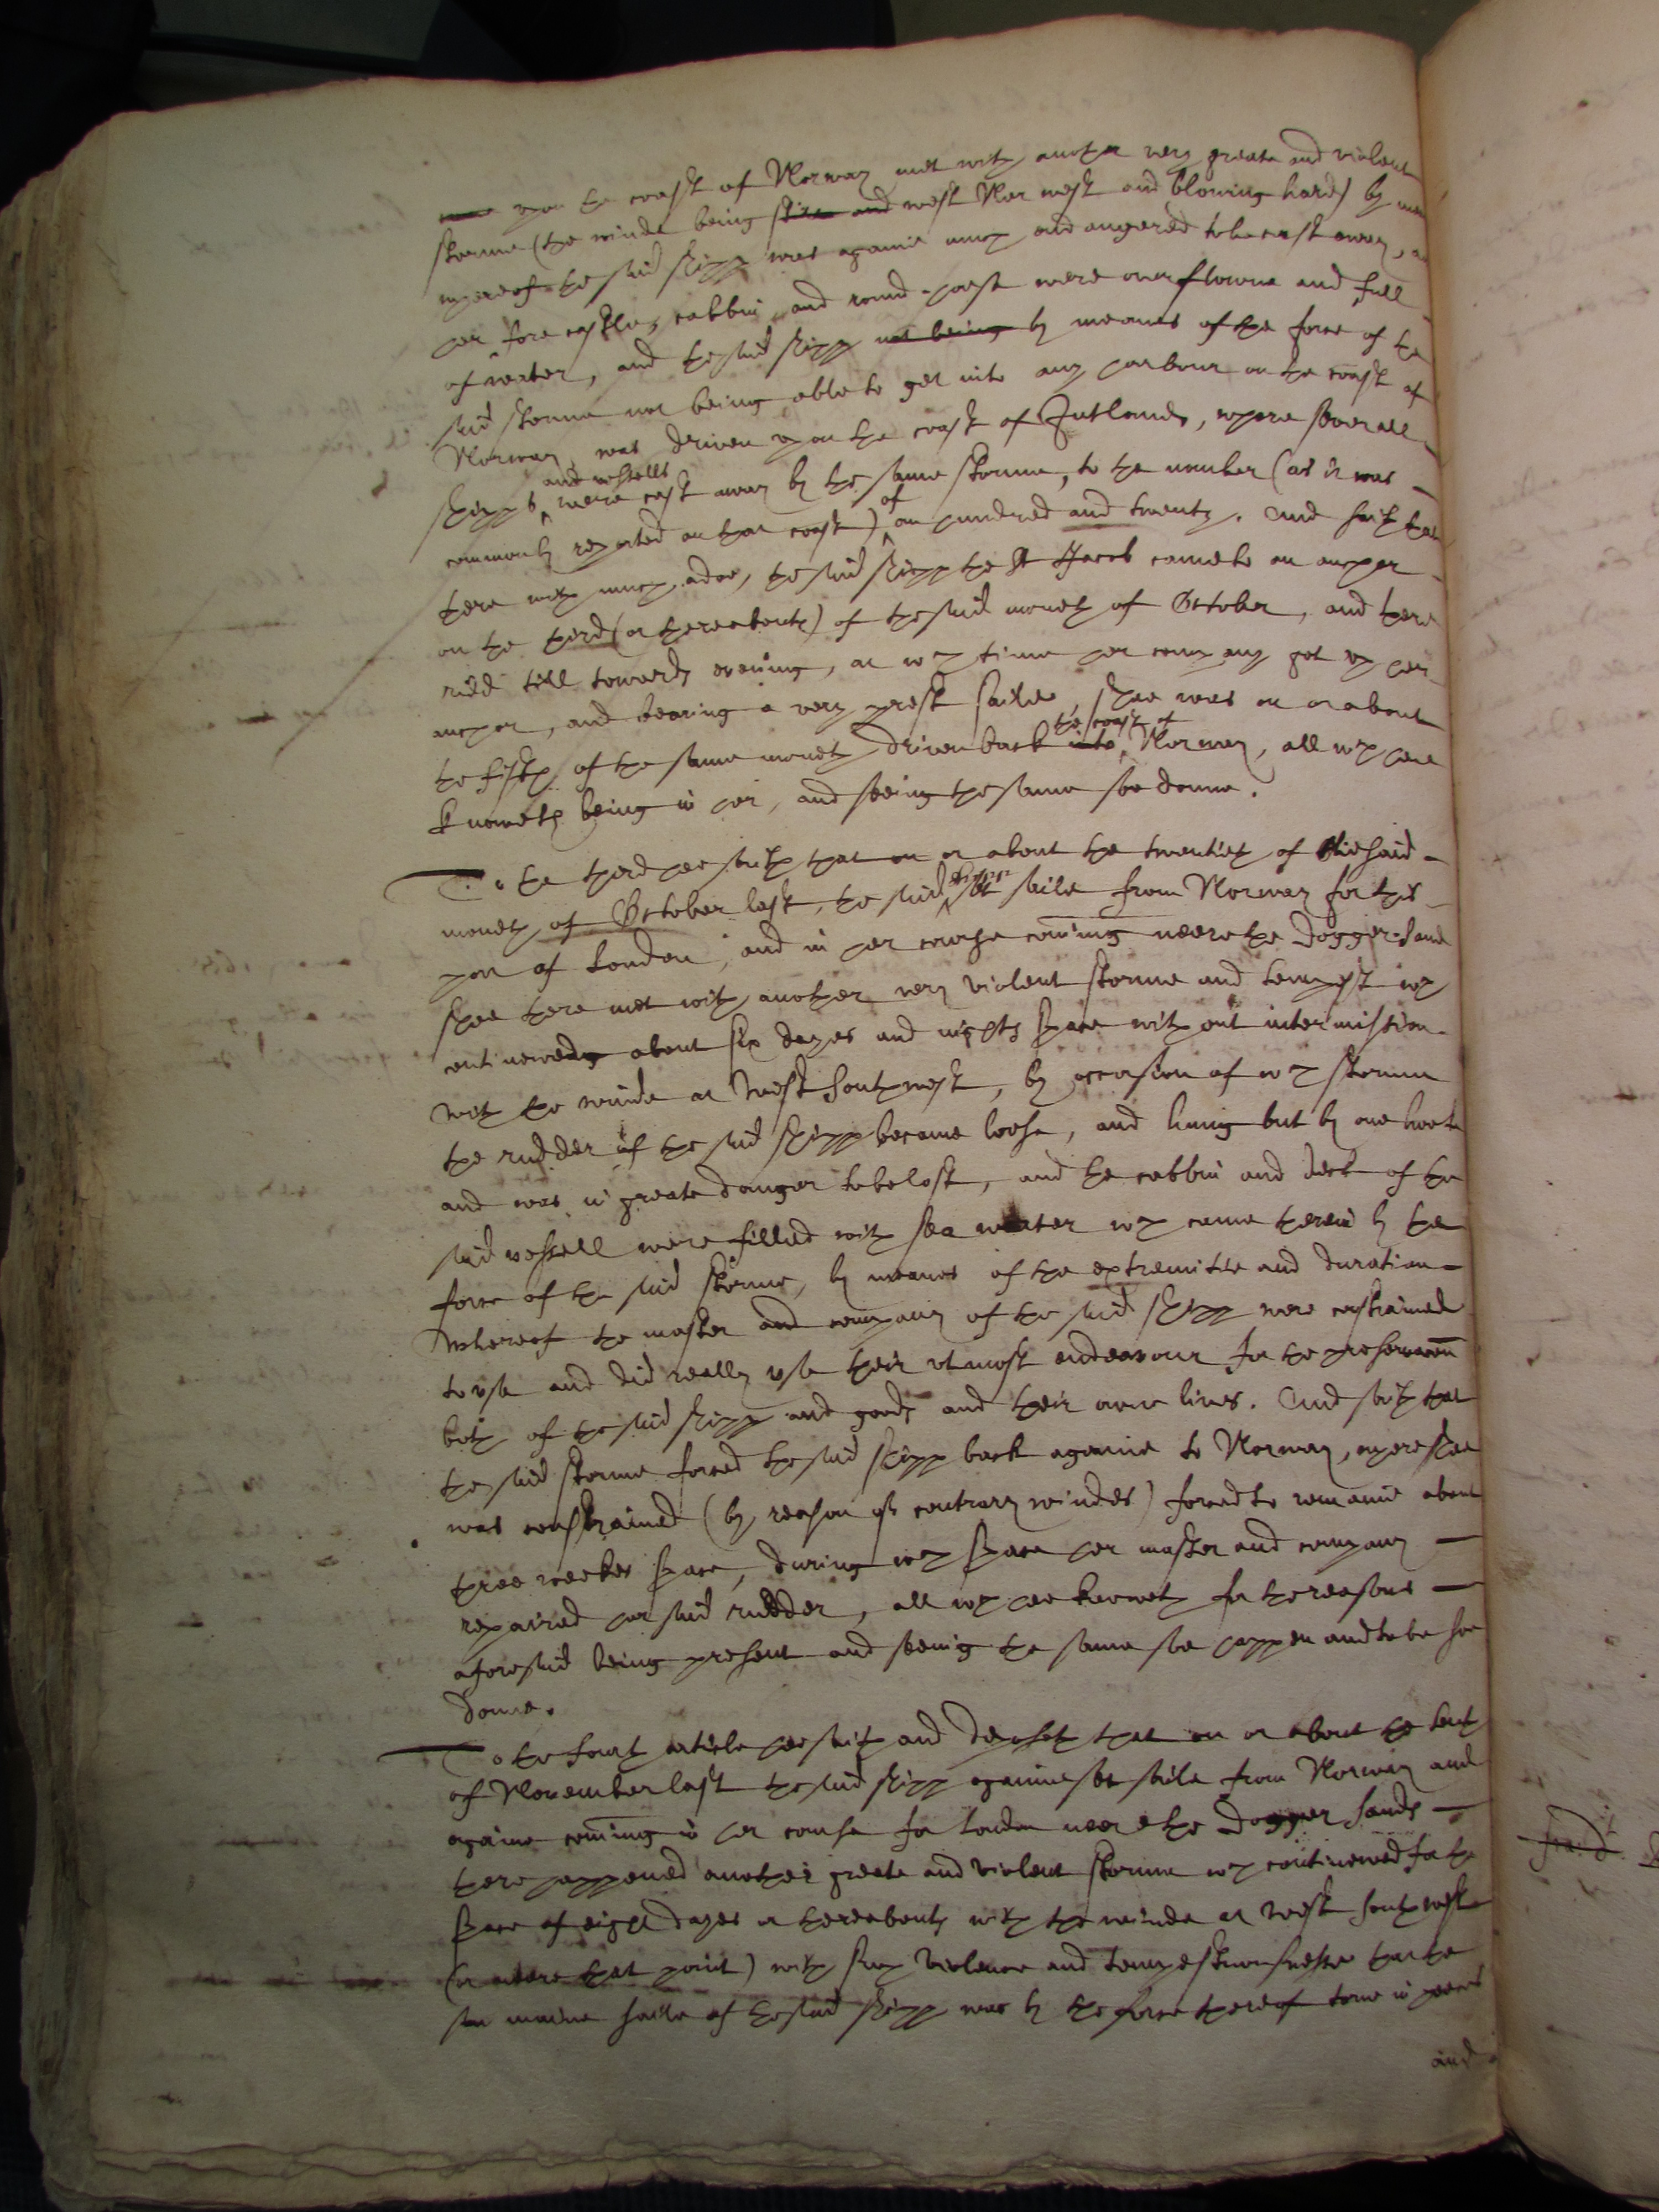 upon the coast of Norway met with another very greate and violent
storme (the winde being west Nor west and blowing hard) by
whereof the said shipp was againe much endangered to be cast away,
her fore castle, cabbin and round-house were overflowne and full
of water, and the said shipp not being by meanes of the force of the
said storme not being able to get into any harbour on the coast of
Norway was driven upon the coast of Jutland, where severall
and vessells
shipps were cast away by the same storme, to the number (as it was
of
commonly reported on that coast) an hundred and twenty. And saith that
there with much adoe, the said shipp the St Jacob came to an anchor
on the third (or thereabouts) of the said moneth of October, and there
ridd till towards evening, at wch time her company got up her
anchor, and bearing a very prest saile, shee was on or about
the coast of
the fifth of the same moneth driven back into Norway, all wch hee
knoweth being in her, and seeing the same soe donne.
To the third hee saith that on or about the twentieth of the said
shipp
moneth of October last, the said set saile from Norway for this
port of London, and in her course coming neere the Dogger-sand
shee there met with another very violent storme and tempest wch
continewed about six dayes and nights space without intermission
with the winde at West Southwest, by occasion of wch storme
the rudder of the said shipp became loose, and hung but by one hooke
and was in greate danger to be lost, and the cabbin and deck of the
said vessell were filled with sea water wch came therein by the
force of the said storme, by meanes of the extremitie and duration
whereof the master and company of the said shipp were constrained
to use and did really use their utmost endeavour for the preservacon
both of the said shipp and goods and their owne lives. And saith that
the said storme forced the said shipp back againe to Norway, where shee
was constrained (by reason of contrary windes) forced to remaine about
three weekes space, during wch space her master and company
repaired her said rudder, all wch hee knoweth for the reasons
aforesaid being present and seeing the same soe happen and to be soe
donne.
To the fourth article hee saith and deposeth that on or about the tenth
of November last the said shipp againe set saile from Norway and
againe coming in her course for London neere the Dogger sands
there happened another greate and violent storme wch continewed for the
space of eight dayes or thereabouts with the winde at West Southwest
(or neere that point) with such violence and tempestuousnesse that the
maine saile of the said shipp was by the force thereof torne in peeces
and